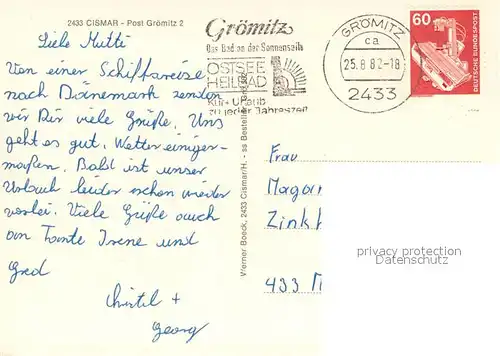 2433 CISMAR - Post Grömitz 2
Grömitz
Das Bad an der Sonnenseite
OSTSEE
HEILBAD
Kur + Urlaub
zu jeder Jahreszeit
GRÖMITZ
ca
25.8.82-18
2433
60
DEUTSCHE BUNDESPOST
Liebe Mutti
Von einer Schiffsreise
nach Dänemark senden
wir Dir viele Grüße. Uns
geht es gut. Wetter einiger-
maßen. Bald ist unser
Urlaub leider schon wieder
vorbei. Viele Grüße auch
an Tante Irene und
Gred
Christel +
Georg
Werner Boeck, 2433 Cismar/H.
Frau
Magar
Zink
433 M
privacy protection
Datenschutz